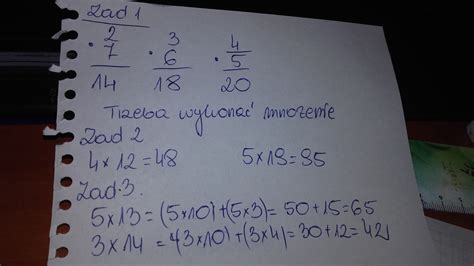 Zad 1
2 3 4
· 7 · 6 · 5
14 18 20
Trzeba wykonać mnożenie
Zad 2
4 x 12 = 48 5 x 19 = 95
Zad. 3.
5 x 13 = (5 x 10) + (5 x 3) = 50 + 15 = 65
3 x 14 = (3 x 10) + (3 x 4) = 30 + 12 = 42